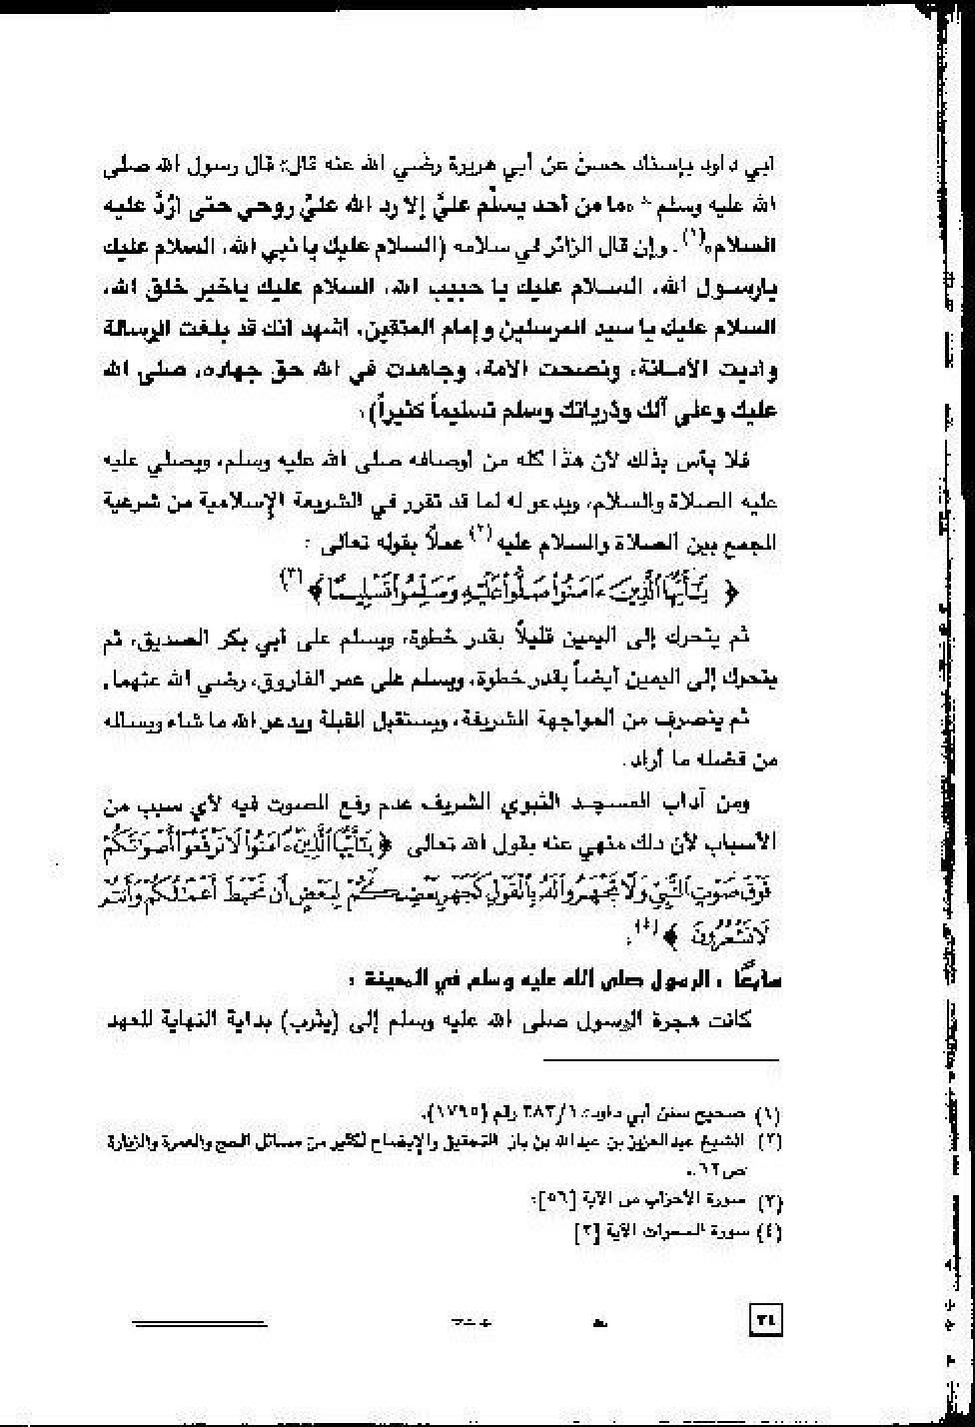 أبي داود بإسناد حسن عن أبي هريرة رضي الله عنه قال: قال رسول الله صلى
الله عليه وسلم «ما من أحد يسلّم عليَّ إلا رد الله عليَّ روحي حتى أرُدَّ عليه
السلام»(١). وإن قال الزائر في سلامه (السلام عليك يا نبي الله، السلام عليك
يارسول الله، السلام عليك يا حبيب الله، السلام عليك ياخير خلق الله،
السلام عليك يا سيد المرسلين وإمام المتقين، اشهد أنك قد بلغت الرسالة
وأديت الأمانة، ونصحت الأمة، وجاهدت في الله حق جهاده، صلى الله
عليك وعلى آلك وذرياتك وسلم تسليماً كثيراً)،
فلا بأس بذلك لأن هذا كله من أوصافه صلى الله عليه وسلم، ويصلي عليه
عليه الصلاة والسلام، ويدعو له لما قد تقرر في الشريعة الإسلامية من شرعية
الجمع بين الصلاة والسلام عليه(٢) عملاً بقوله تعالى :
﴿ يَٰٓأَيُّهَا ٱلَّذِينَ ءَامَنُوا۟ صَلُّوا۟ عَلَيْهِ وَسَلِّمُوا۟ تَسْلِيمًا ﴾(٣)
ثم يتحرك إلى اليمين قليلاً بقدر خطوة، ويسلم على أبي بكر الصديق، ثم
يتحرك إلى اليمين أيضاً بقدر خطوة، ويسلم على عمر الفاروق، رضي الله عنهما.
ثم ينصرف من المواجهة الشريفة، ويستقبل القبلة ويدعو الله ما شاء ويسأله
من فضله ما أراد.
ومن آداب المسجد النبوي الشريف عدم رفع الصوت فيه لأي سبب من
الأسباب لأن ذلك منهي عنه بقول الله تعالى ﴿ يَٰٓأَيُّهَا ٱلَّذِينَ ءَامَنُوا۟ لَا تَرْفَعُوٓا۟ أَصْوَٰتَكُمْ
فَوْقَ صَوْتِ ٱلنَّبِىِّ وَلَا تَجْهَرُوا۟ لَهُۥ بِٱلْقَوْلِ كَجَهْرِ بَعْضِكُمْ لِبَعْضٍ أَن تَحْبَطَ أَعْمَٰلُكُمْ وَأَنتُمْ
لَا تَشْعُرُونَ ﴾(٤).
سابعًا : الرسول صلى الله عليه وسلم في المدينة :
كانت هجرة الرسول صلى الله عليه وسلم إلى (يثرب) بداية النهاية للعهد
(١) صحيح سنن أبي داود: ٣٨٣/١ رقم (١٧٩٥).
(٢) الشيخ عبدالعزيز بن عبدالله بن باز التحقيق والإيضاح لكثير من مسائل الحج والعمرة والزيارة
ص٦٢.
(٣) سورة الأحزاب من الآية [٥٦].
(٤) سورة الحجرات الآية [٢]
٣٤